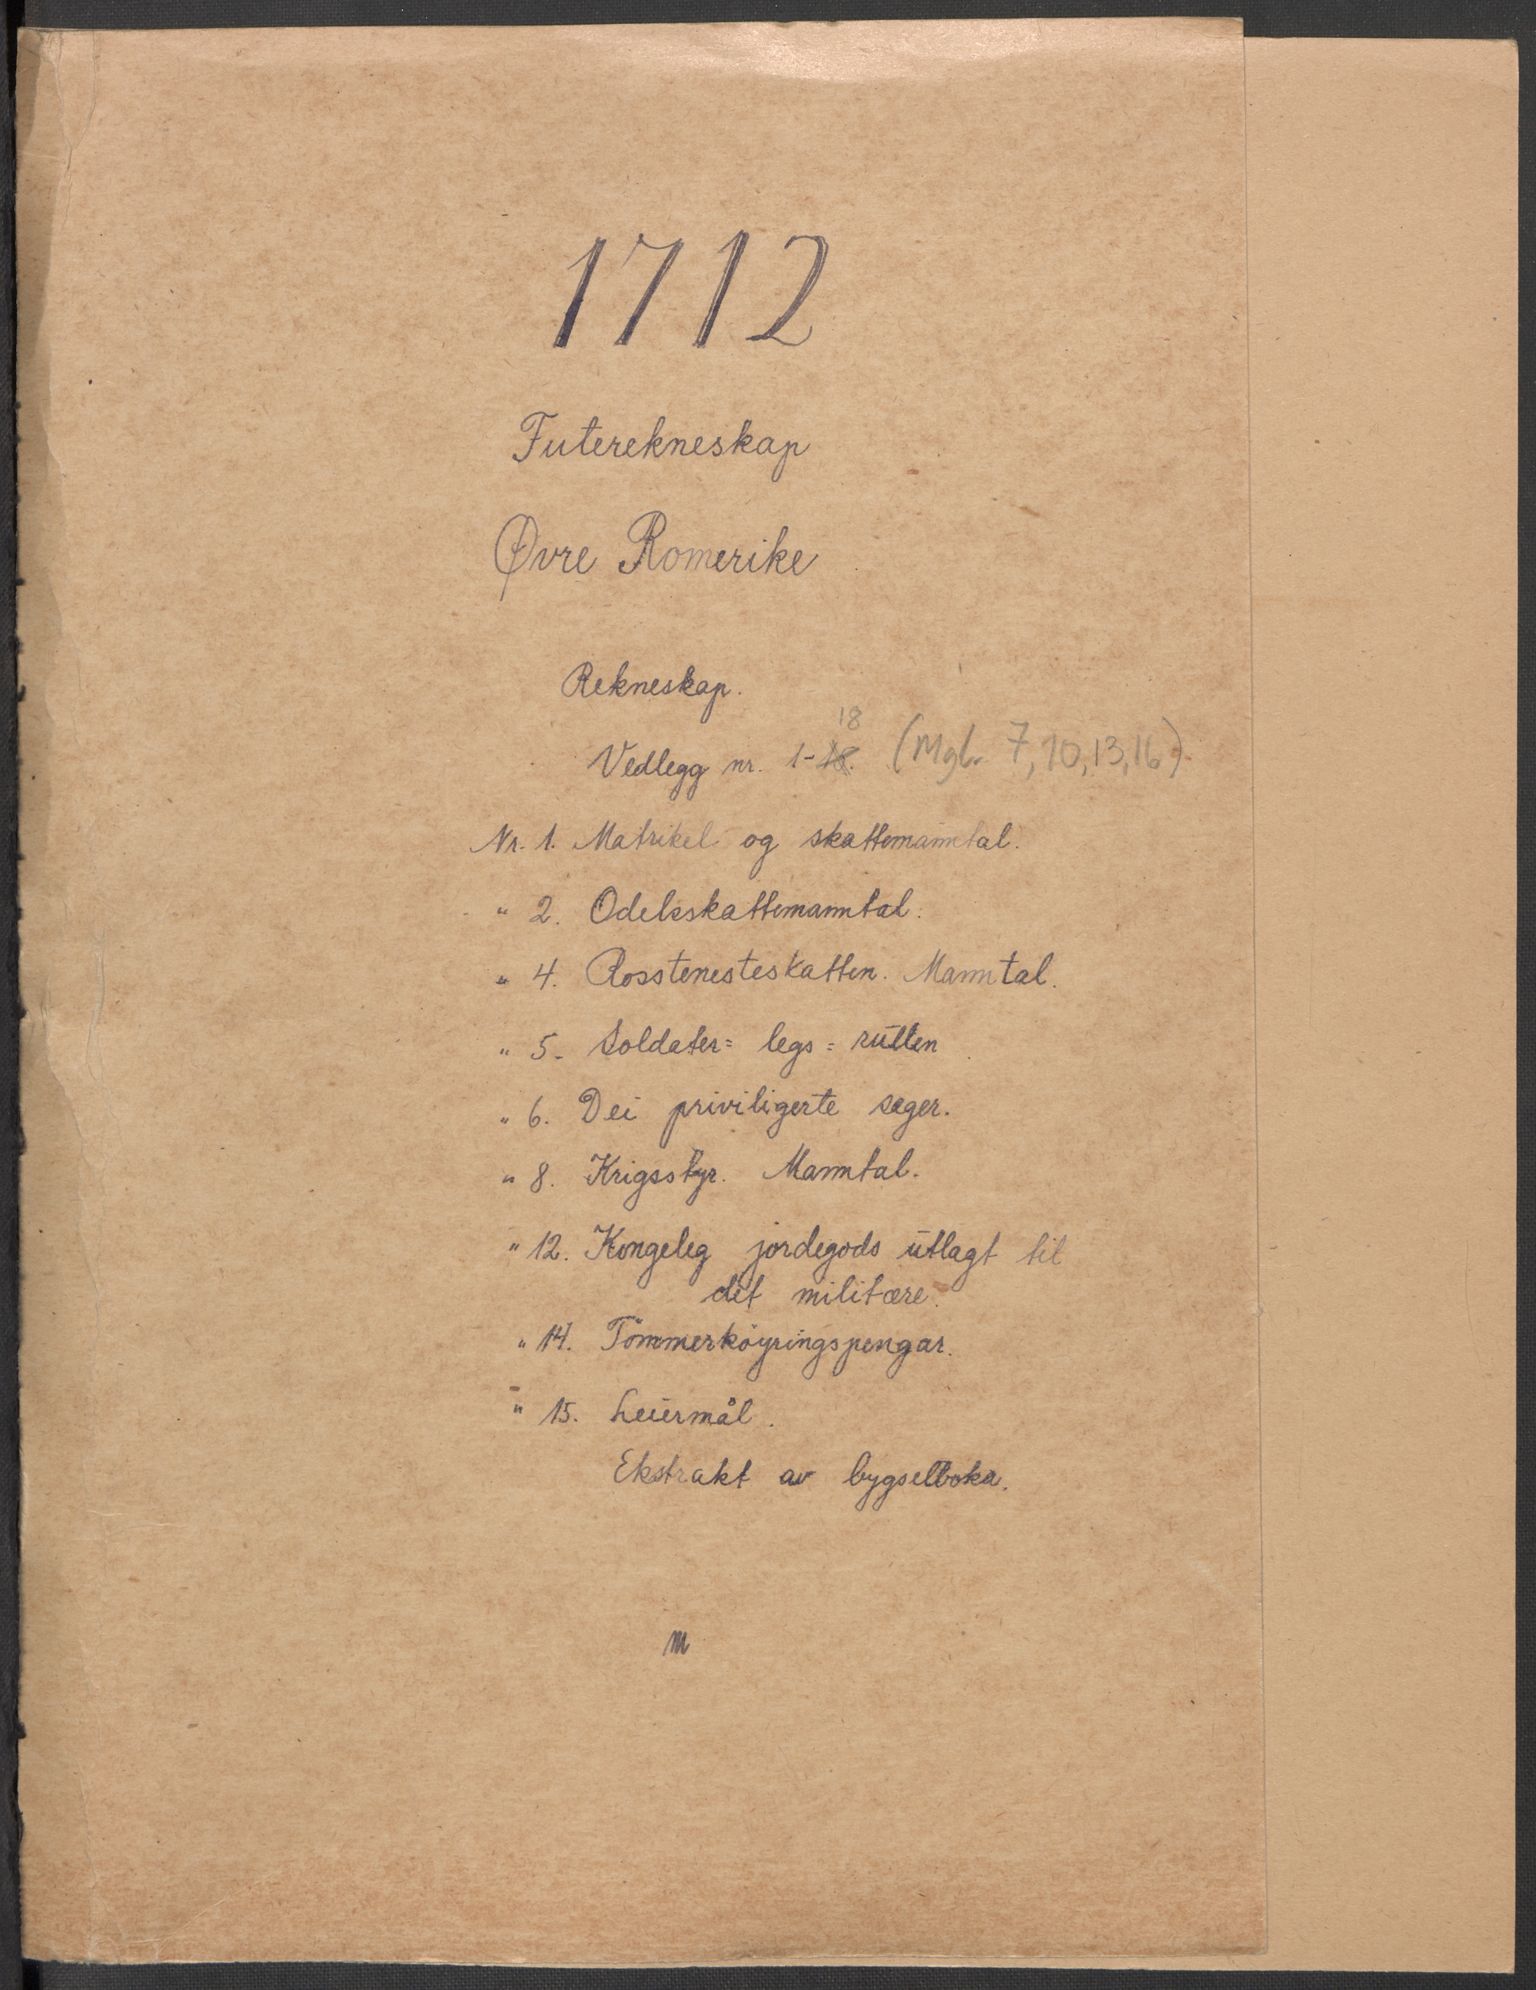 1712
Futerekneskap
Øvre Romerike
Rekneskap.
Vedlegg nr. 1-18 (Mgl. 7, 10, 13, 16)
Nr. 1. Matrikel og skattemanntal.
" 2. Odelsskattemanntal.
" 4. Rosstenesteskatten. Manntal.
" 5. Soldater= legs= rullen
" 6. Dei priviligerte sager.
" 8. Krigsstyr. Manntal.
" 12. Kongeleg jordegods utlagt til
det militære.
" 14. Tömmerköyringspengar.
" 15. Leiermål.
Ekstrakt av bygselboka.
m